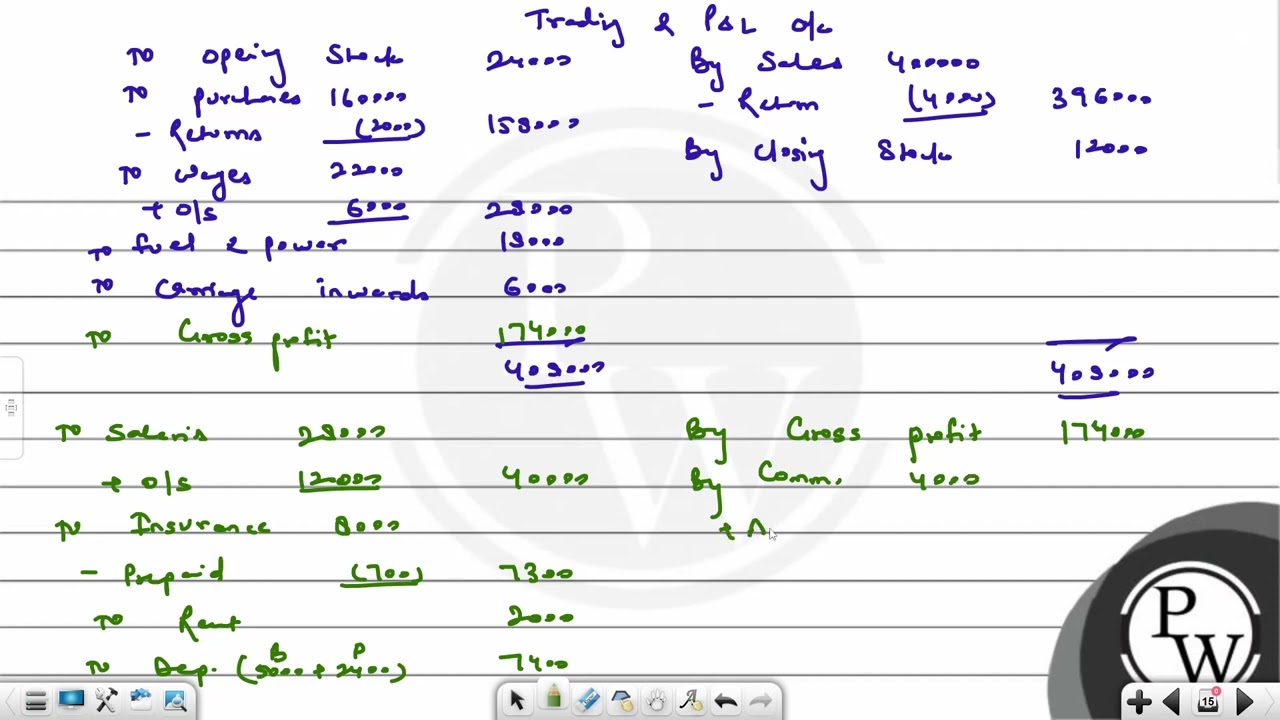 Trading & P&L a/c
To Opening Stock 24000 By Sales 400000
To purchases 160000 - Return (4000) 396000
- Returns (2000) 158000 By Closing Stock 12000
To wages 22000
+ o/s 6000 28000
To fuel & power 18000
To Carriage inwards 6000
To Gross profit 174000
408000 408000
To Salaris 28000 By Gross profit 174000
+ o/s 12000 40000 By Comm. 4000
To Insurance 8000 + A
- Prepaid (700) 7300
To Rent 2000
To Dep. (B 5000 + P 2400) 7400
PW
PW
15